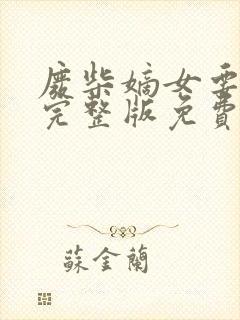 廢柴嫡女要
完整版免費
蘇金蘭